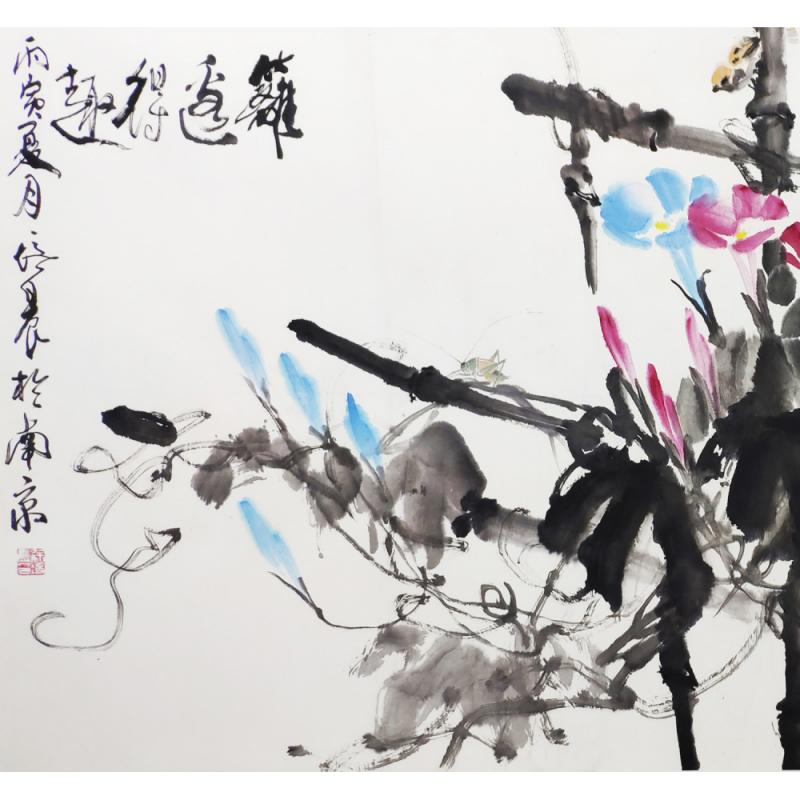 籬邊得趣
丙寅夏月培晨於南京